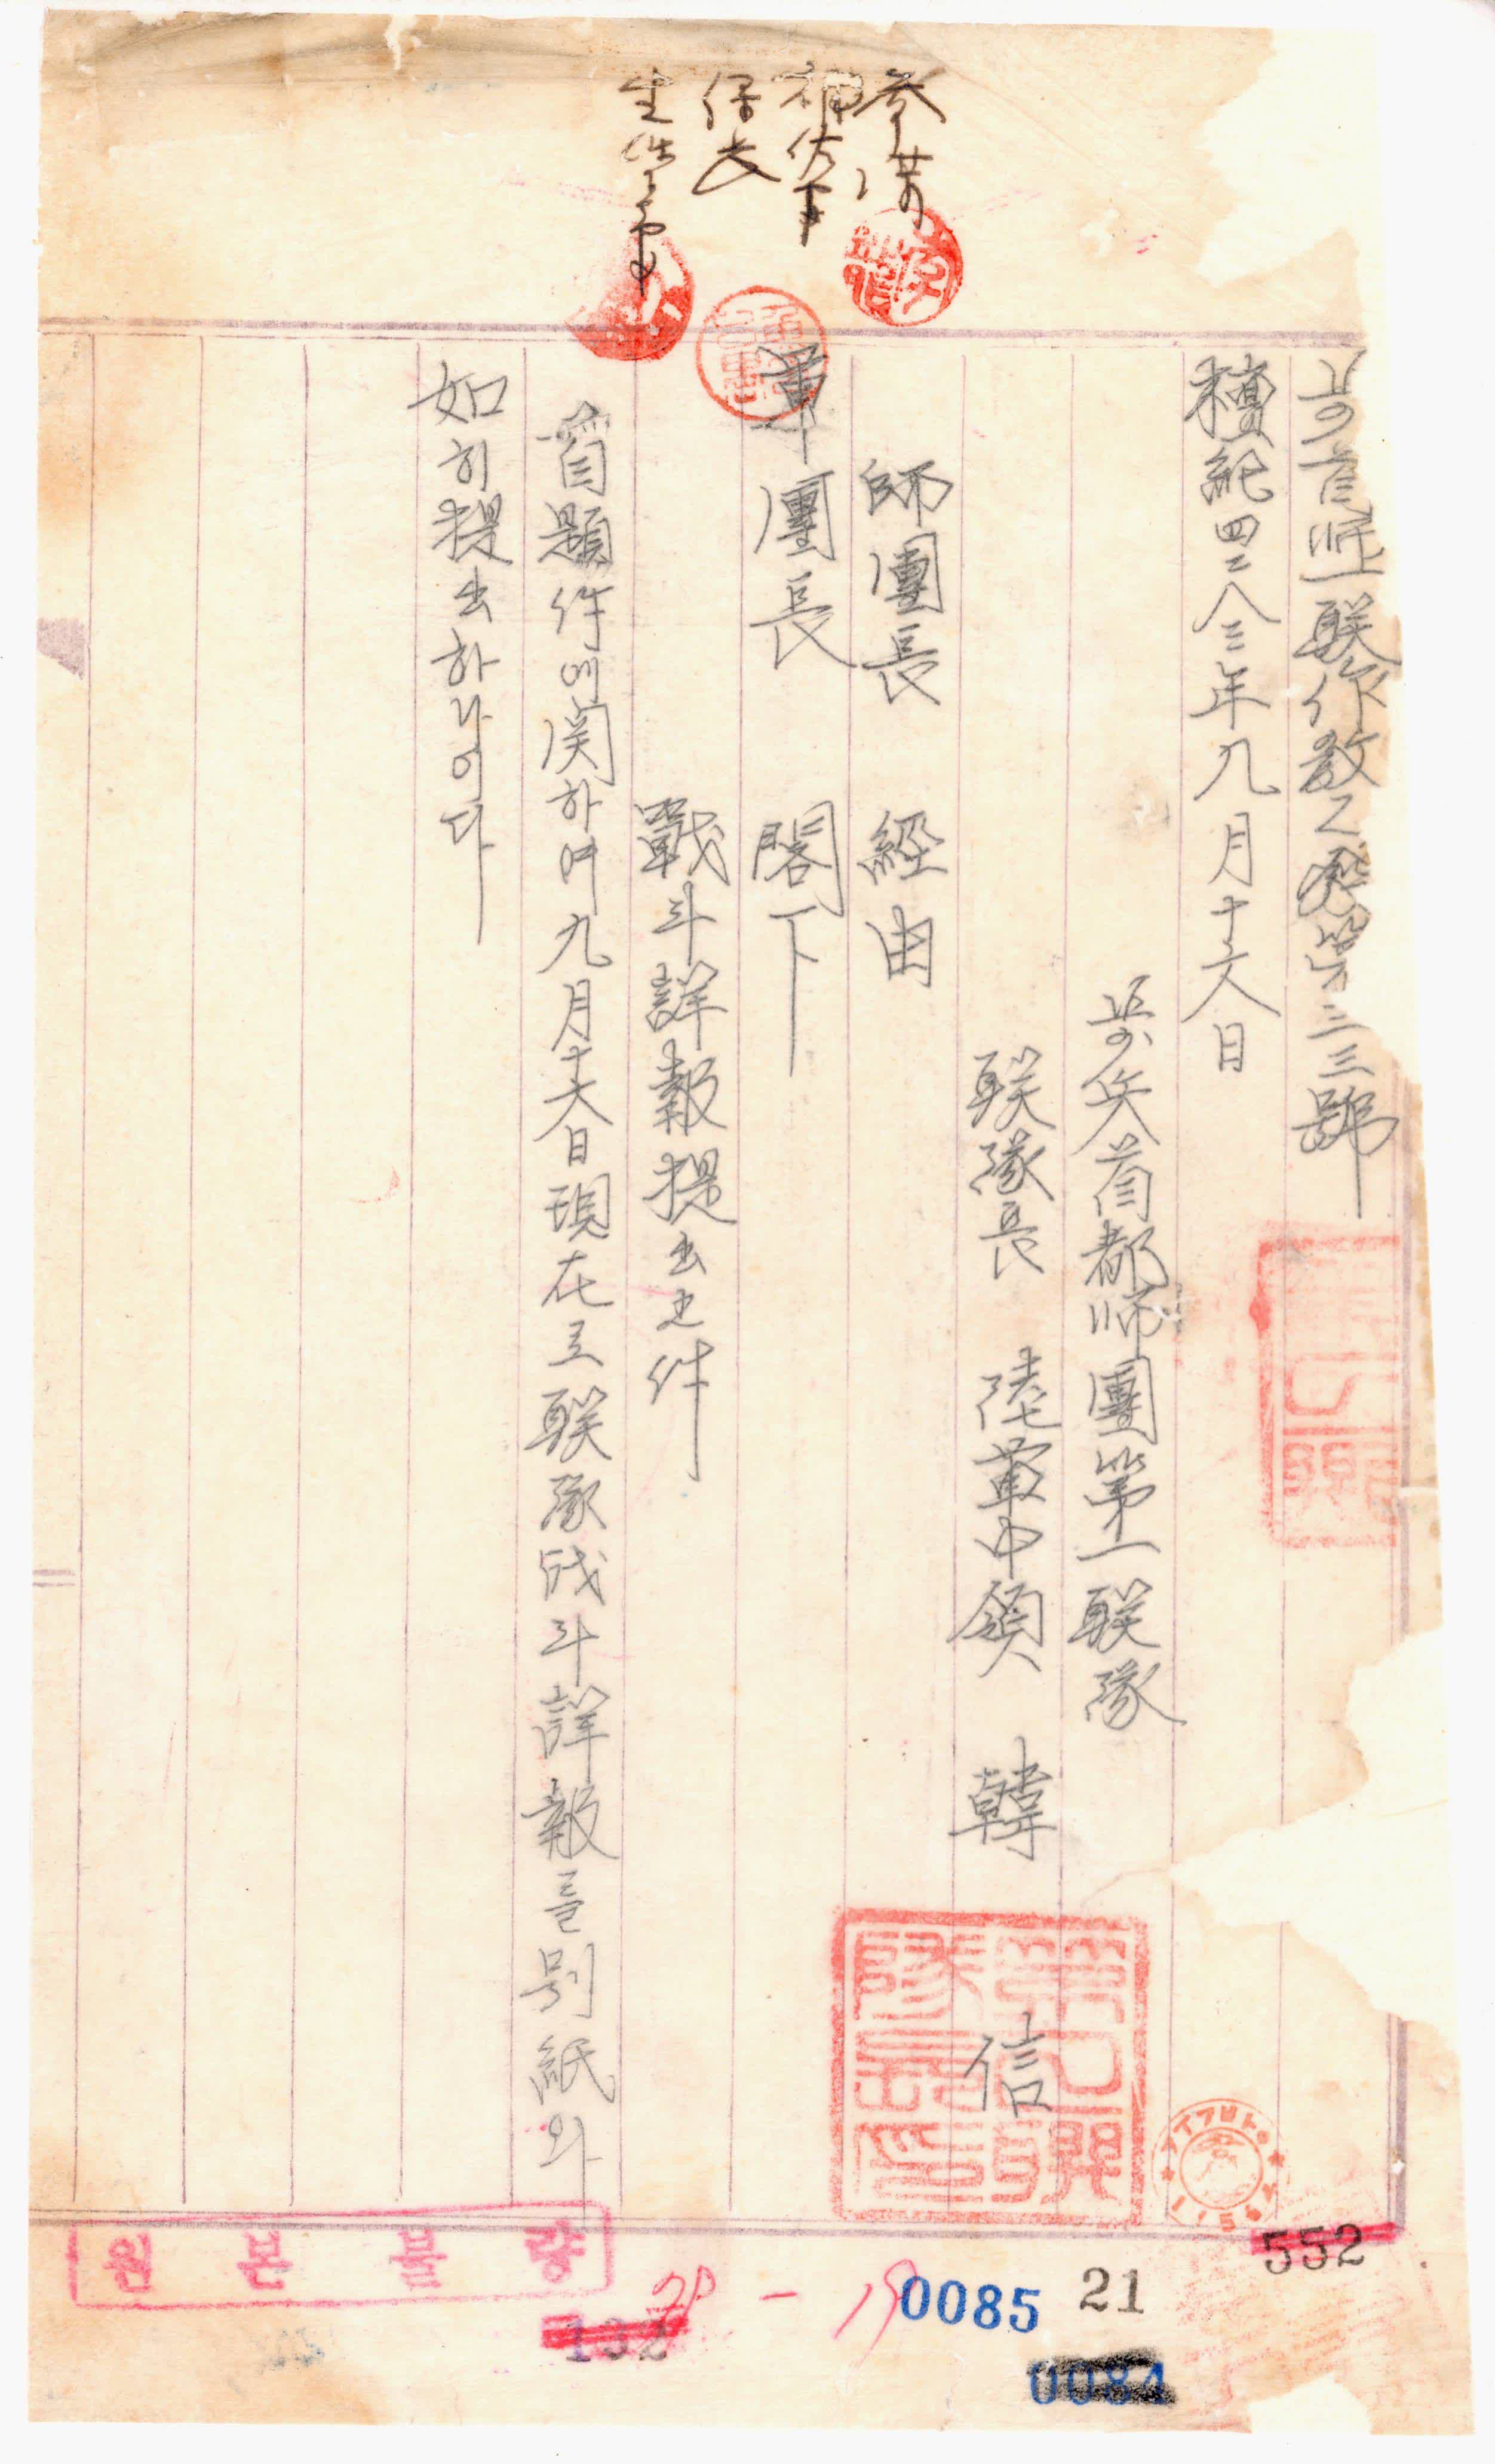 首師一聯作敎乙發第三三號
檀紀四二八三年九月十六日
步兵首都師團第一聯隊
聯隊長 陸軍中領 韓 信
師團長 經由
軍團長 閣下
戰斗詳報提出之件
首題件에関하여九月十六日現在로聯隊战斗詳報를別紙와
如히提出하나이다
參謀
補佐官
係長
第一聯隊長印
원본불량
552
21
0085
0084
132